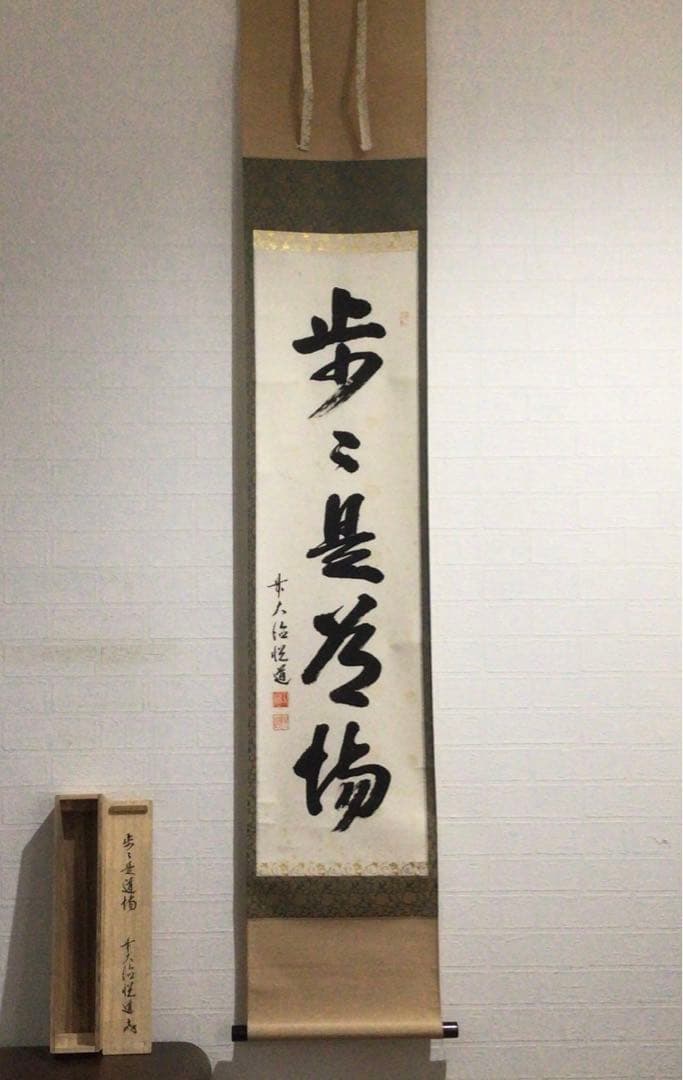 歩々是道場
前大徳悦道
歩々是道場 前大徳悦道